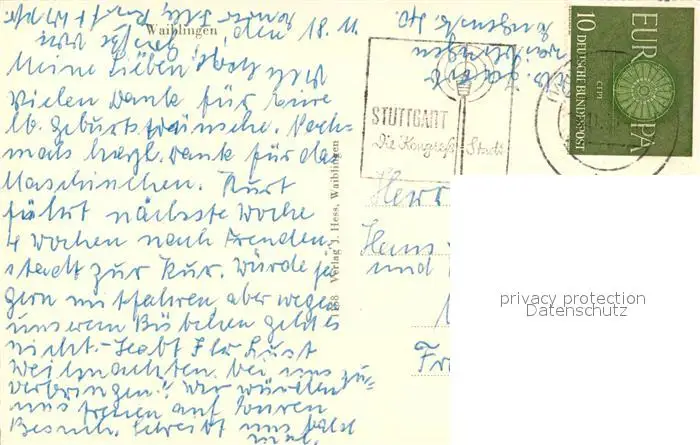 Waiblingen, den 18. 11.
Meine Lieben!
Vielen Dank für Eure
lb. Geburtstagswünsche. Noch-
mals herzl. Dank für das
Maschinchen. Kurt
fährt nächste Woche
4 Wochen nach Freuden-
stadt zur Kur. Würde so
gern mitfahren, aber wegen
unserem Bübchen geht es
nicht.- Habt Ihr Lust
Weihnachten bei uns zu-
verbringen? Wir würden
uns freuen auf Euren
Besuch. Schreibt uns bald
mal.
1188 Verlag J. Hess, Waiblingen
STUTTGART
Die Kongreß-Stadt
EUROPA
CEPT
10 DEUTSCHE BUNDESPOST
Herr
Hans
und
Fr
privacy protection
Datenschutz